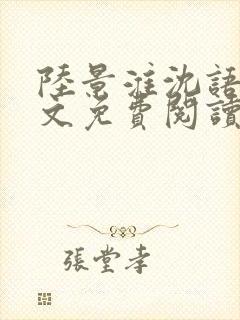 陸景淮沈語
文免費閱讀
張堂孝